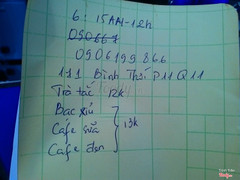 6: 15AM-12h
090667
0906199866
111 Bình Thới P11 Q11
Trà tắc 12k
Bạc xỉu
Cafe sữa } 13k
Cafe đen